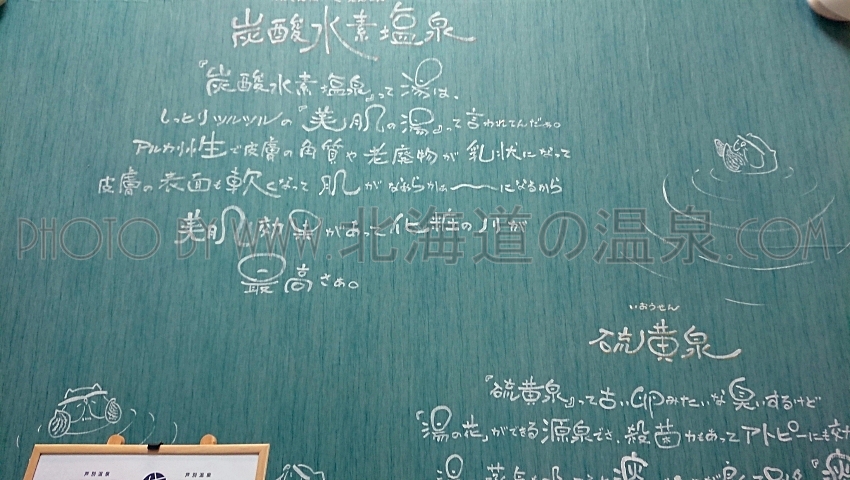 炭酸水素塩泉
『炭酸水素塩泉』って湯は、
しっとりツルツルの『美肌の湯』って言われてんだぁ。
アルカリ性で皮膚の角質や老廃物が乳状になって
皮膚の表面も軟くなって肌がなめらかぁ〜になるから
美肌効果があって化粧のノリが
最高さぁ。
PHOTO BY WWW.北海道の温泉.COM
いおうせん
硫黄泉
『硫黄泉』って古い卵みたいな臭いするけど
『湯の花』ができる源泉でさ、殺菌力もあってアトピーにも
芦別温泉
芦別温泉